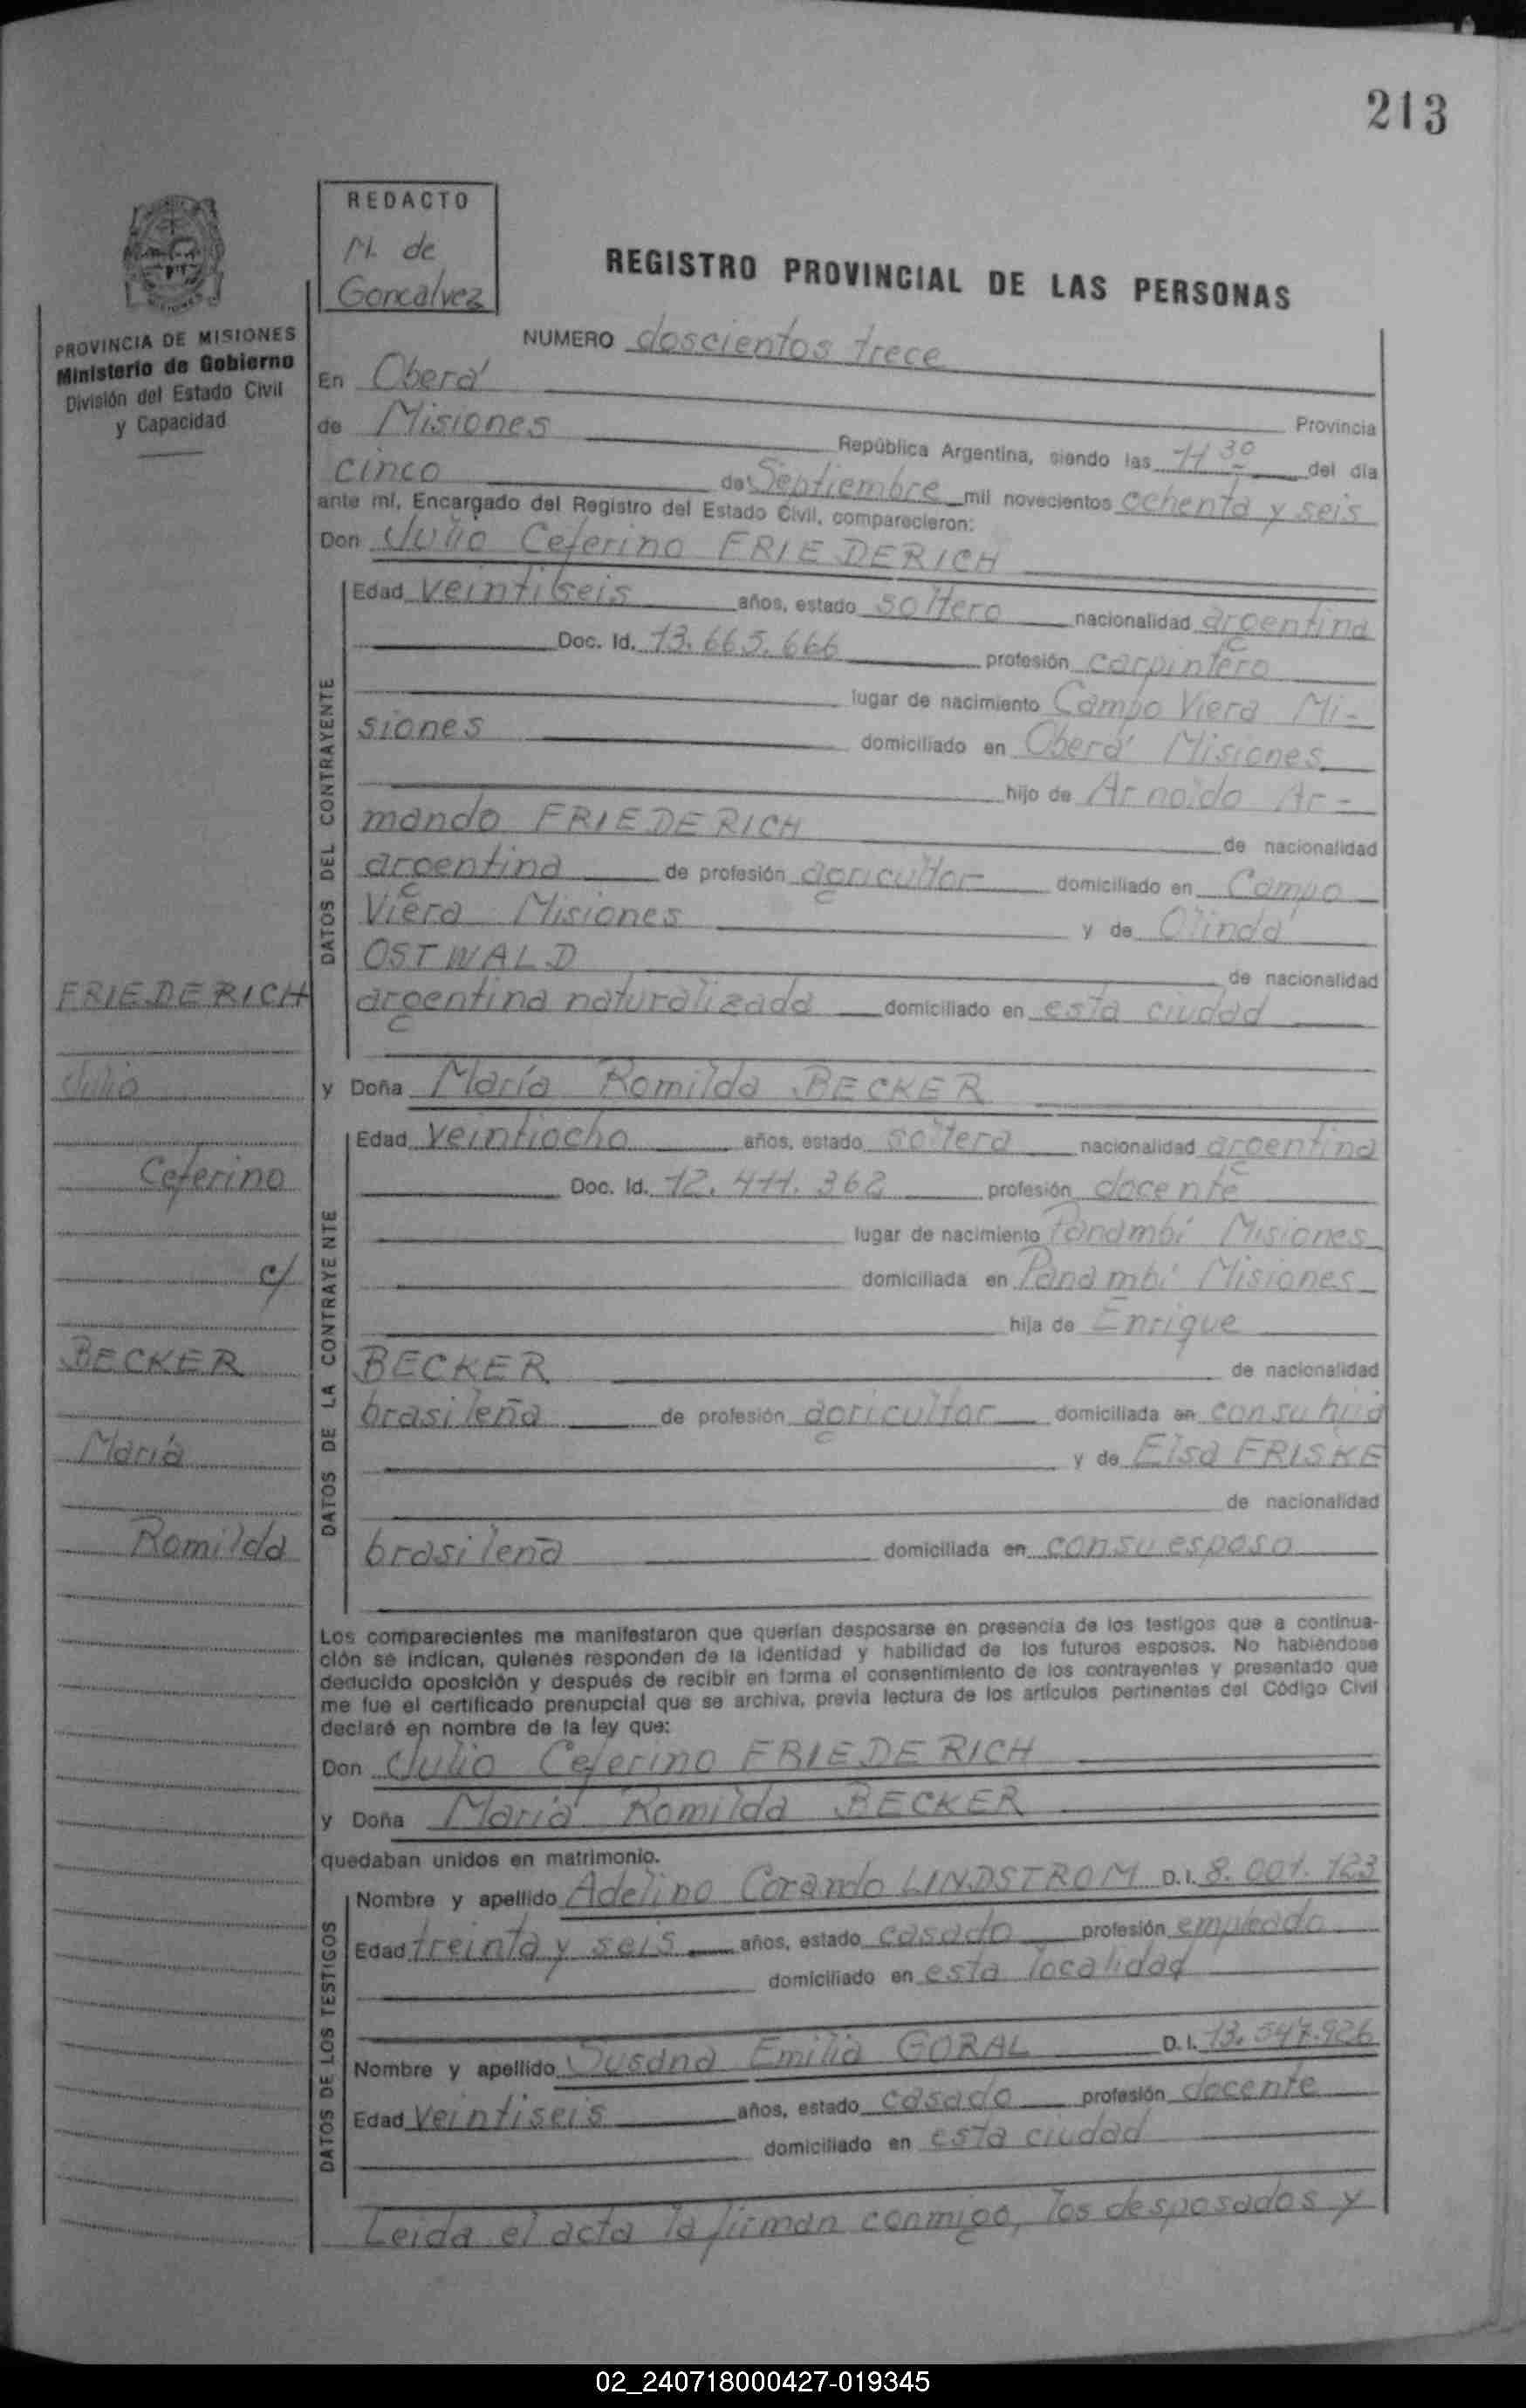 213
REDACTO
M. de
Goncalvez
REGISTRO PROVINCIAL DE LAS PERSONAS
PROVINCIA DE MISIONES
Ministerio de Gobierno
División del Estado Civil
y Capacidad
NUMERO doscientos trece
En Oberá
Provincia
de Misiones República Argentina, siendo las 11 30 del día
cinco de Septiembre mil novecientos ochenta y seis
ante mí, Encargado del Registro del Estado Civil, comparecieron:
Don Julio Ceferino FRIEDERICH
DATOS DEL CONTRAYENTE
Edad veintiseis años, estado soltero nacionalidad argentina
Doc. Id. 13.665.666 profesión carpintero
lugar de nacimiento Campo Viera Mi-
siones domiciliado en Oberá Misiones
hijo de Arnoldo Ar-
mando FRIEDERICH de nacionalidad
argentina de profesión agricultor domiciliado en Campo
Viera Misiones y de Olinda
OSTWALD de nacionalidad
argentina naturalizada domiciliado en esta ciudad
y Doña María Romilda BECKER
DATOS DE LA CONTRAYENTE
Edad veintiocho años, estado soltera nacionalidad argentina
Doc. Id. 12.411.362 profesión docente
lugar de nacimiento Panambí Misiones
domiciliada en Panambí Misiones
hija de Enrique
BECKER de nacionalidad
brasileña de profesión agricultor domiciliada en con su hija
y de Elsa FRISKE
de nacionalidad
brasileña domiciliada en con su esposo
FRIEDERICH
Julio
Ceferino
c/
BECKER
María
Romilda
Los comparecientes me manifestaron que querían desposarse en presencia de los testigos que a continua-
ción se indican, quienes responden de la identidad y habilidad de los futuros esposos. No habiéndose
deducido oposición y después de recibir en forma el consentimiento de los contrayentes y presentado que
me fue el certificado prenupcial que se archiva, previa lectura de los artículos pertinentes del Código Civil
declaré en nombre de la ley que:
Don Julio Ceferino FRIEDERICH
y Doña María Romilda BECKER
quedaban unidos en matrimonio.
DATOS DE LOS TESTIGOS
Nombre y apellido Adelino Corando LINDSTROM D.I. 8.001.123
Edad treinta y seis años, estado casado profesión empleado
domiciliado en esta localidad
Nombre y apellido Susana Emilia GORAL D.I. 13.547.926
Edad veintiseis años, estado casado profesión docente
domiciliado en esta ciudad
Leida el acta la firman conmigo, los desposados y
02_240718000427-019345